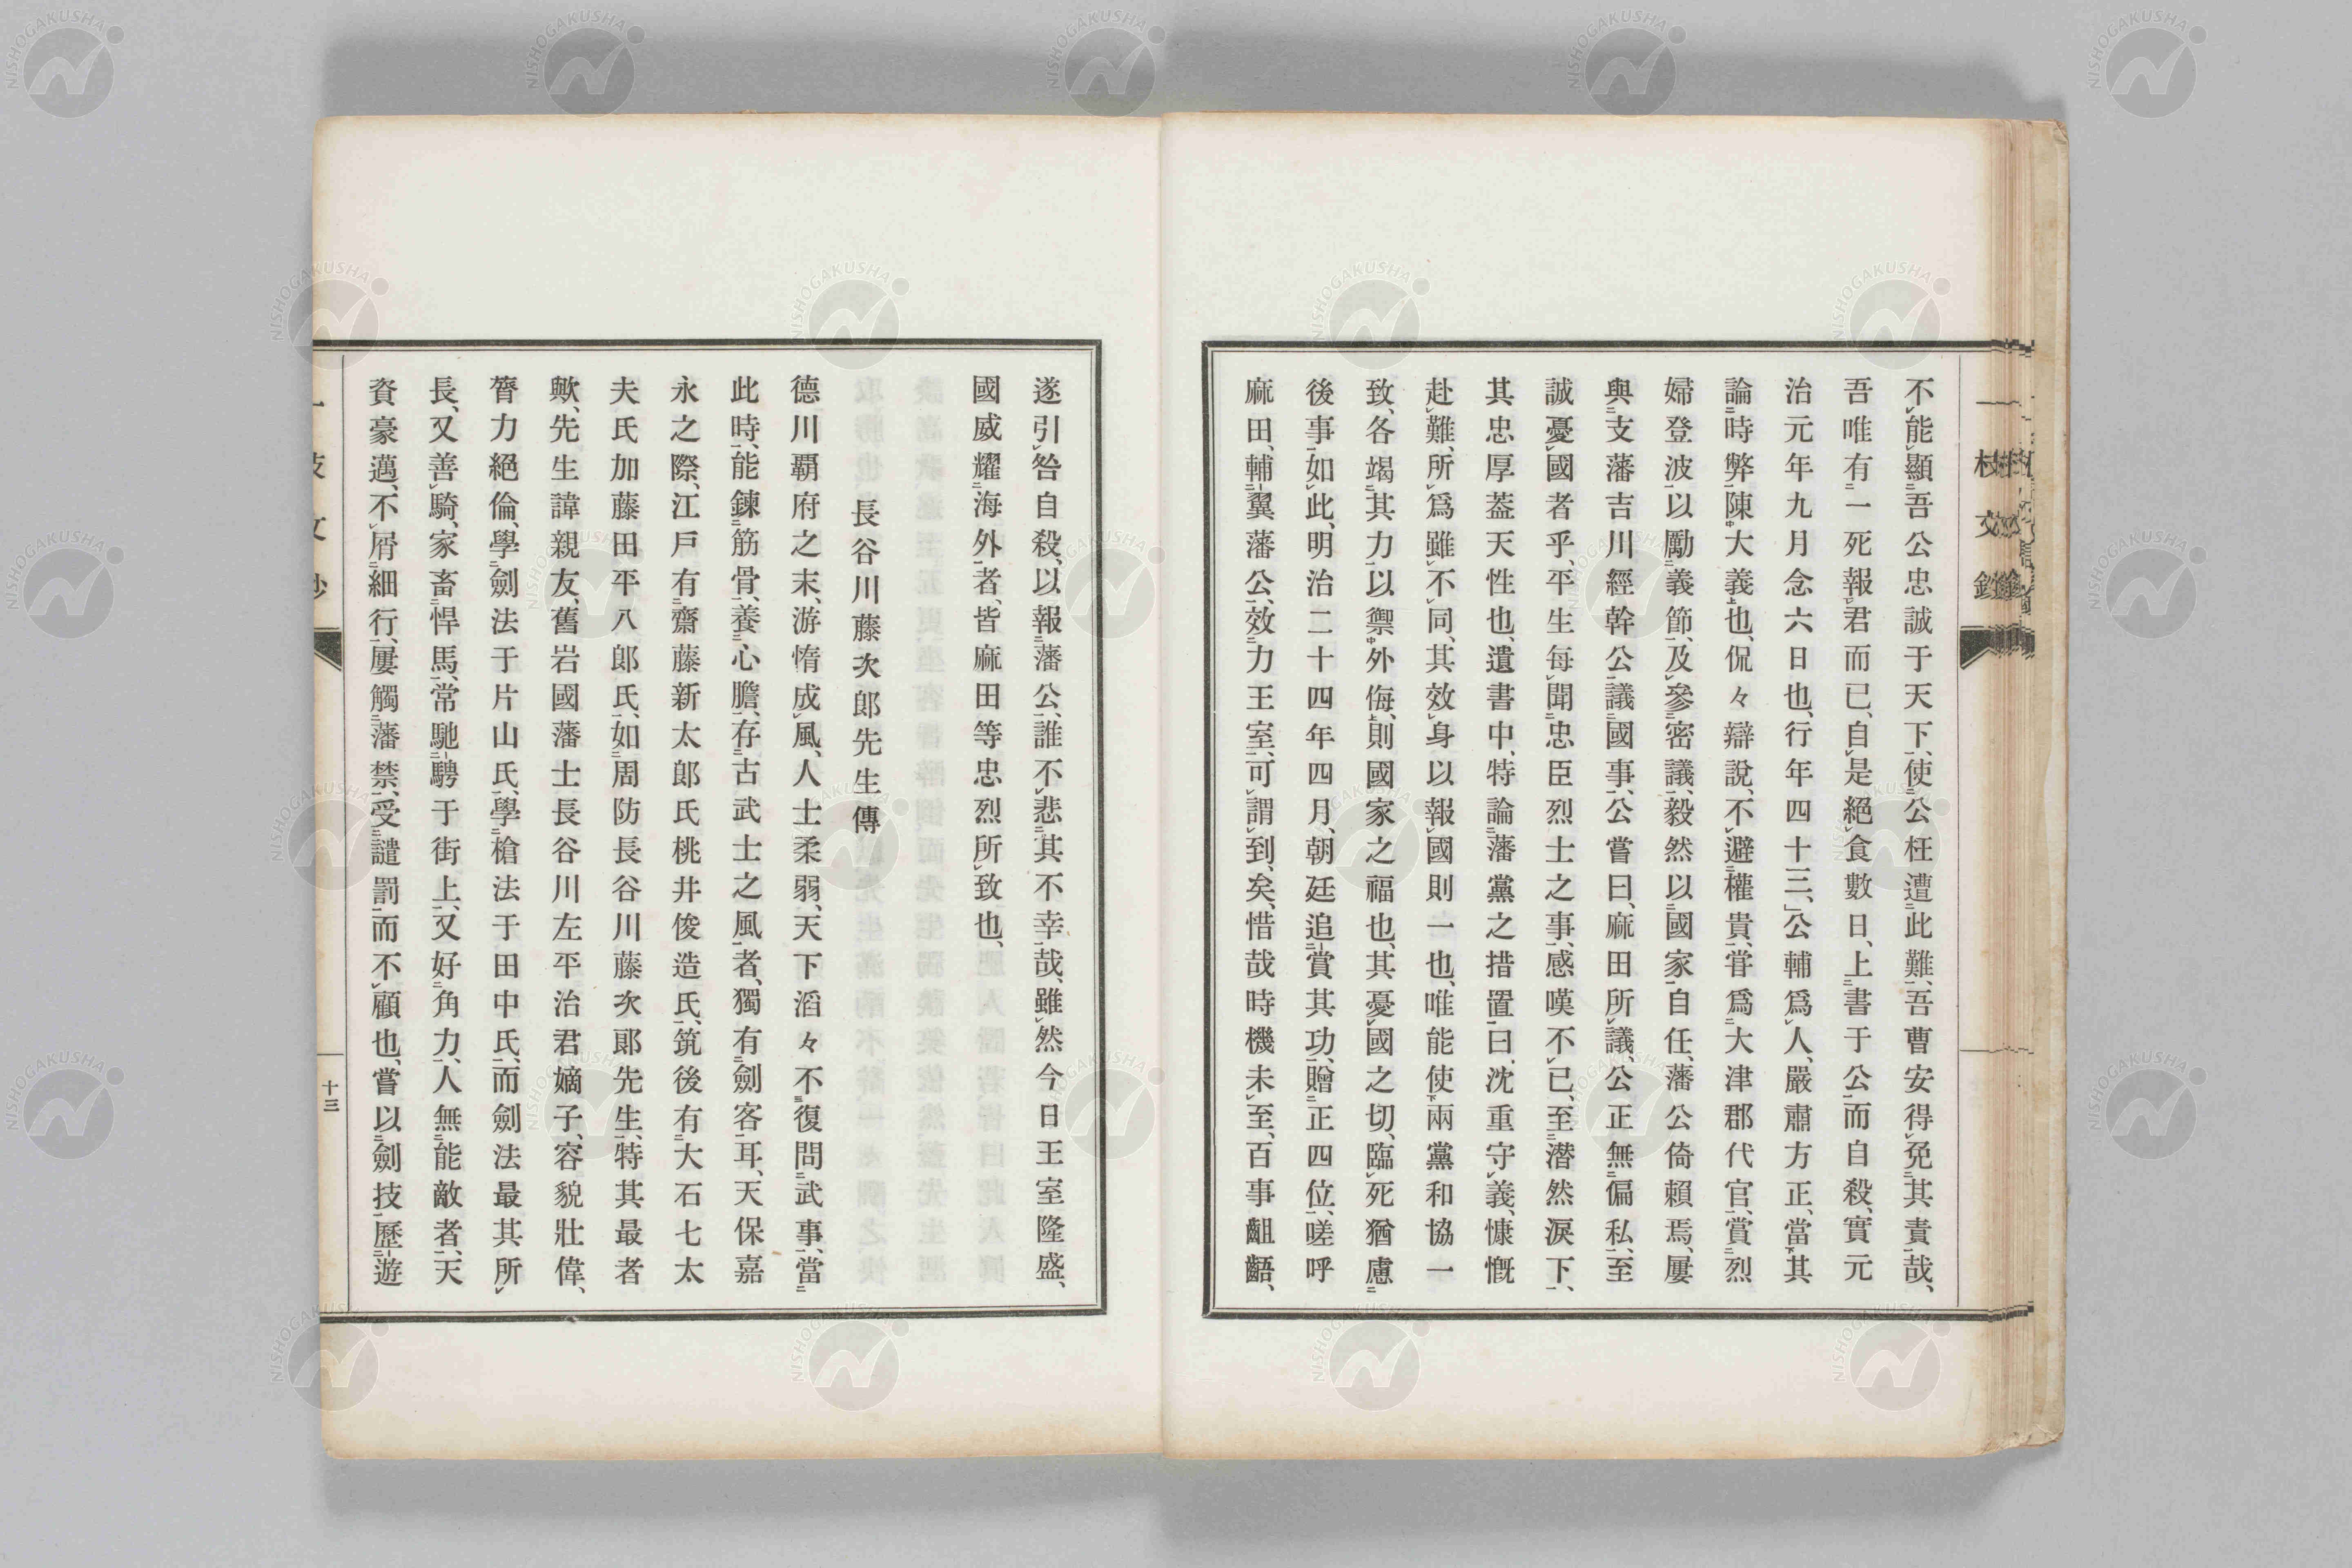 不能顯吾公忠誠于天下、使公枉遭此難、吾曹安得免其責哉、
吾唯有一死報君而已、自是絕食數日、上書于公而自殺、實元
治元年九月念六日也、行年四十三、公輔爲人、嚴肅方正、當其
論時弊陳大義也、侃々辯說、不避權貴、甞爲大津郡代官、賞烈
婦登波以勵義節、及參密議、毅然以國家自任、藩公倚賴焉、屢
與支藩吉川經幹公議國事、公嘗曰、麻田所議、公正無偏私、至
誠憂國者乎、平生每聞忠臣烈士之事、感嘆不已、至潸然淚下、
其忠厚蓋天性也、遺書中、特論藩黨之措置曰、沈重守義、慷慨
赴難、所爲雖不同、其效身以報國則一也、唯能使兩黨和協一
致、各竭其力、以禦外侮、則國家之福也、其憂國之切、臨死猶慮
後事如此、明治二十四年四月、朝廷追賞其功、贈正四位、嗟呼
麻田、輔翼藩公、效力王室、可謂到矣、惜哉時機未至、百事齟齬、
遂引咎自殺、以報藩公、誰不悲其不幸哉、雖然今日王室隆盛、
國威耀海外者、皆麻田等忠烈所致也、
長谷川藤次郎先生傳
德川覇府之末、游惰成風、人士柔弱、天下滔々不復問武事、當
此時、能鍊筋骨、養心膽、存古武士之風者、獨有劍客耳、天保嘉
永之際、江戶有齋藤新太郎氏桃井俊造氏、筑後有大石七太
夫氏加藤田平八郎氏、如周防長谷川藤次郎先生、特其最者
歟、先生諱親友、舊岩國藩士長谷川左平治君嫡子、容貌壯偉、
膂力絕倫、學劍法于片山氏、學槍法于田中氏、而劍法最其所
長、又善騎、家畜悍馬、常馳騁于街上、又好角力、人無能敵者、天
資豪邁、不屑細行、屢觸藩禁、受譴罰而不顧也、嘗以劍技歷遊
十三
一枝文鈔